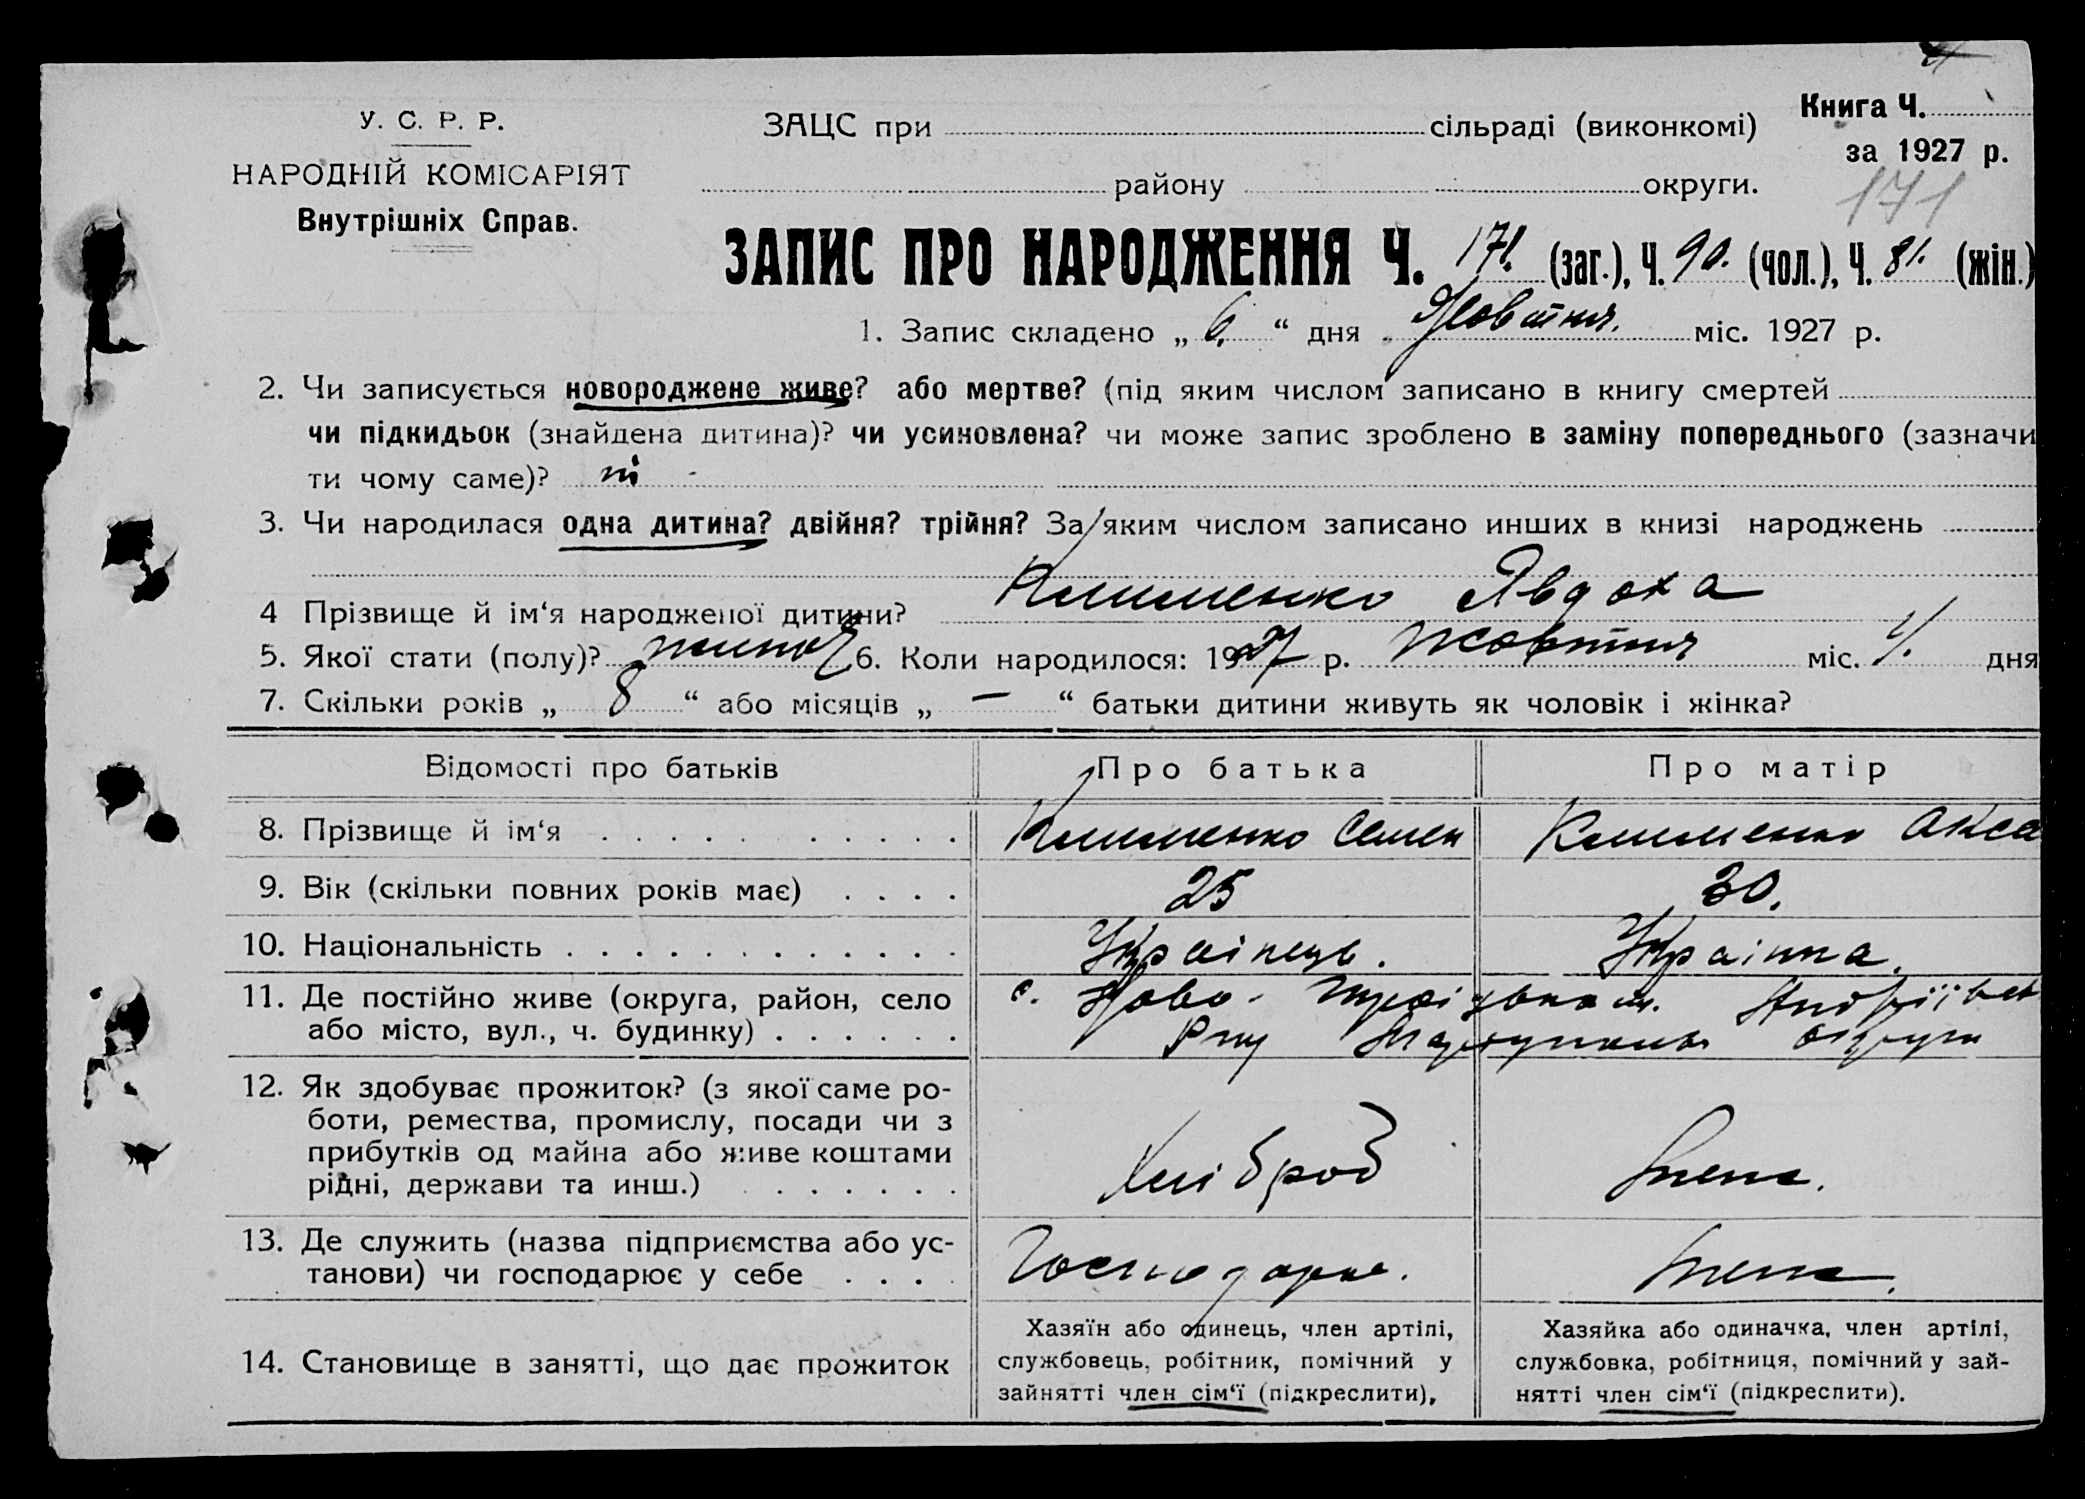 У. С. Р. Р.
НАРОДНІЙ КОМІСАРІЯТ
Внутрішніх Справ.
ЗАЦС при сільраді (виконкомі)
району округи.
Книга Ч.
за 1927 р.
171
ЗАПИС ПРО НАРОДЖЕННЯ Ч. 171. (заг.), Ч. 90. (чол.), Ч. 81. (жін.)
1. Запис складено „ 6. “ дня Жовтня. міс. 1927 р.
2. Чи записується новороджене живе? або мертве? (під яким числом записано в книгу смертей
чи підкидьок (знайдена дитина)? чи усиновлена? чи може запис зроблено в заміну попереднього (зазначи
ти чому саме)? ні
3. Чи народилася одна дитина? двійня? трійня? За яким числом записано инших в книзі народжень
4 Прізвище й ім‘я народженої дитини? Клименко Явдоха
5. Якої стати (полу)? жиноч 6. Коли народилося: 1927 р. Жовтня міс. 4. дня
7. Скільки років „ 8 “ або місяців „ — “ батьки дитини живуть як чоловік і жінка?
Відомості про батьків Про батька Про матір
8. Прізвище й ім‘я . . . . . . . . . . . Клименко Семен Клименко Окса
9. Вік (скільки повних років має) . . . . 25 30.
10. Національність . . . . . . . . . . . . . Українець. Українка.
11. Де постійно живе (округа, район, село с. Ново- Андріївськ
або місто, вул., ч. будинку) . . . . . . Р-ну округи
12. Як здобуває прожиток? (з якої саме ро-
боти, ремества, промислу, посади чи з
прибутків од майна або живе коштами
рідні, держави та инш.) . . . . . . . Хлібороб
13. Де служить (назва підприємства або ус-
танови) чи господарює у себе . . . . Господарює.
14. Становище в занятті, що дає прожиток
Хазяїн або одинець, член артілі,
службовець, робітник, помічний у
зайнятті член сім‘ї (підкреслити),
Хазяйка або одиначка, член артілі,
службовка, робітниця, помічний у зай-
нятті член сім‘ї (підкреслити).